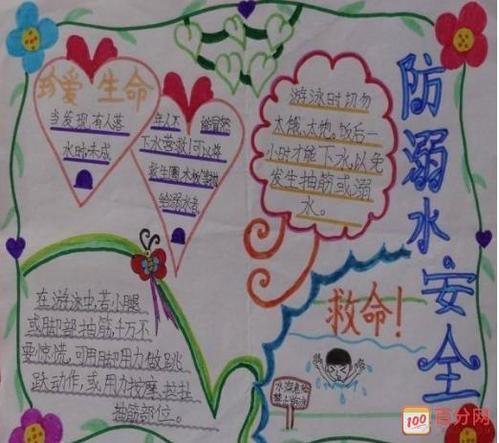 防溺水安全
珍爱生命
当发现有人落
水时未成
年人不
下水营救!可以将
救生圈木板等抛
给溺水者
游泳时切勿
太饿、太饱。饭后一
小时才能下水,以免
发生抽筋或溺
水。
救命!
禁止游泳
在游泳中若小腿
或脚部抽筋千万不
要惊慌,可用脚用力做跳
跃动作,或用力按摩、拉扯
抽筋部位。
100
百分网